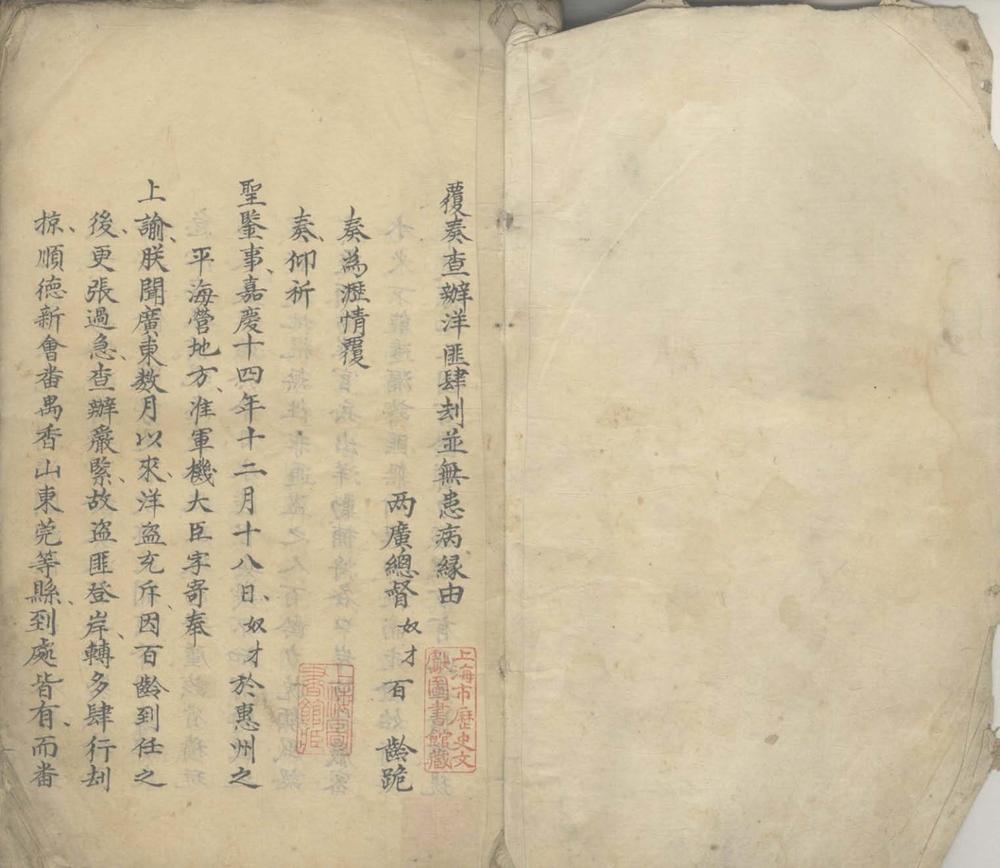 覆奏查辦洋匪肆刦並無患病縁由
两廣總督奴才百齡跪
奏為瀝情覆
奏仰祈
聖鑒事嘉慶十四年十二月十八日奴才於惠州之
平海營地方准軍機大臣字寄奉
上諭朕聞廣東数月以來洋盜充斥因百齡到任之
後更張過急查辦嚴緊故盜匪登岸轉多肆行刦
掠順德新會番禺香山東莞等縣到處皆有而番
上海市歷史文
獻圖書館藏